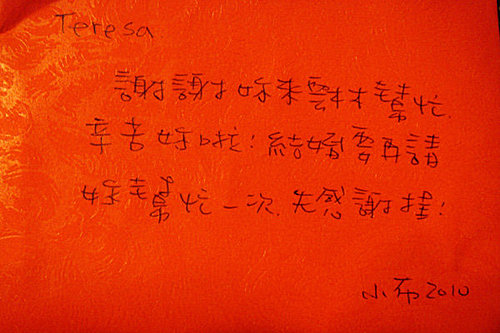 Teresa
謝謝妳來雲林幫忙.
辛苦妳啦!結婚要再請
妳幫忙一次.先感謝!
小布2010